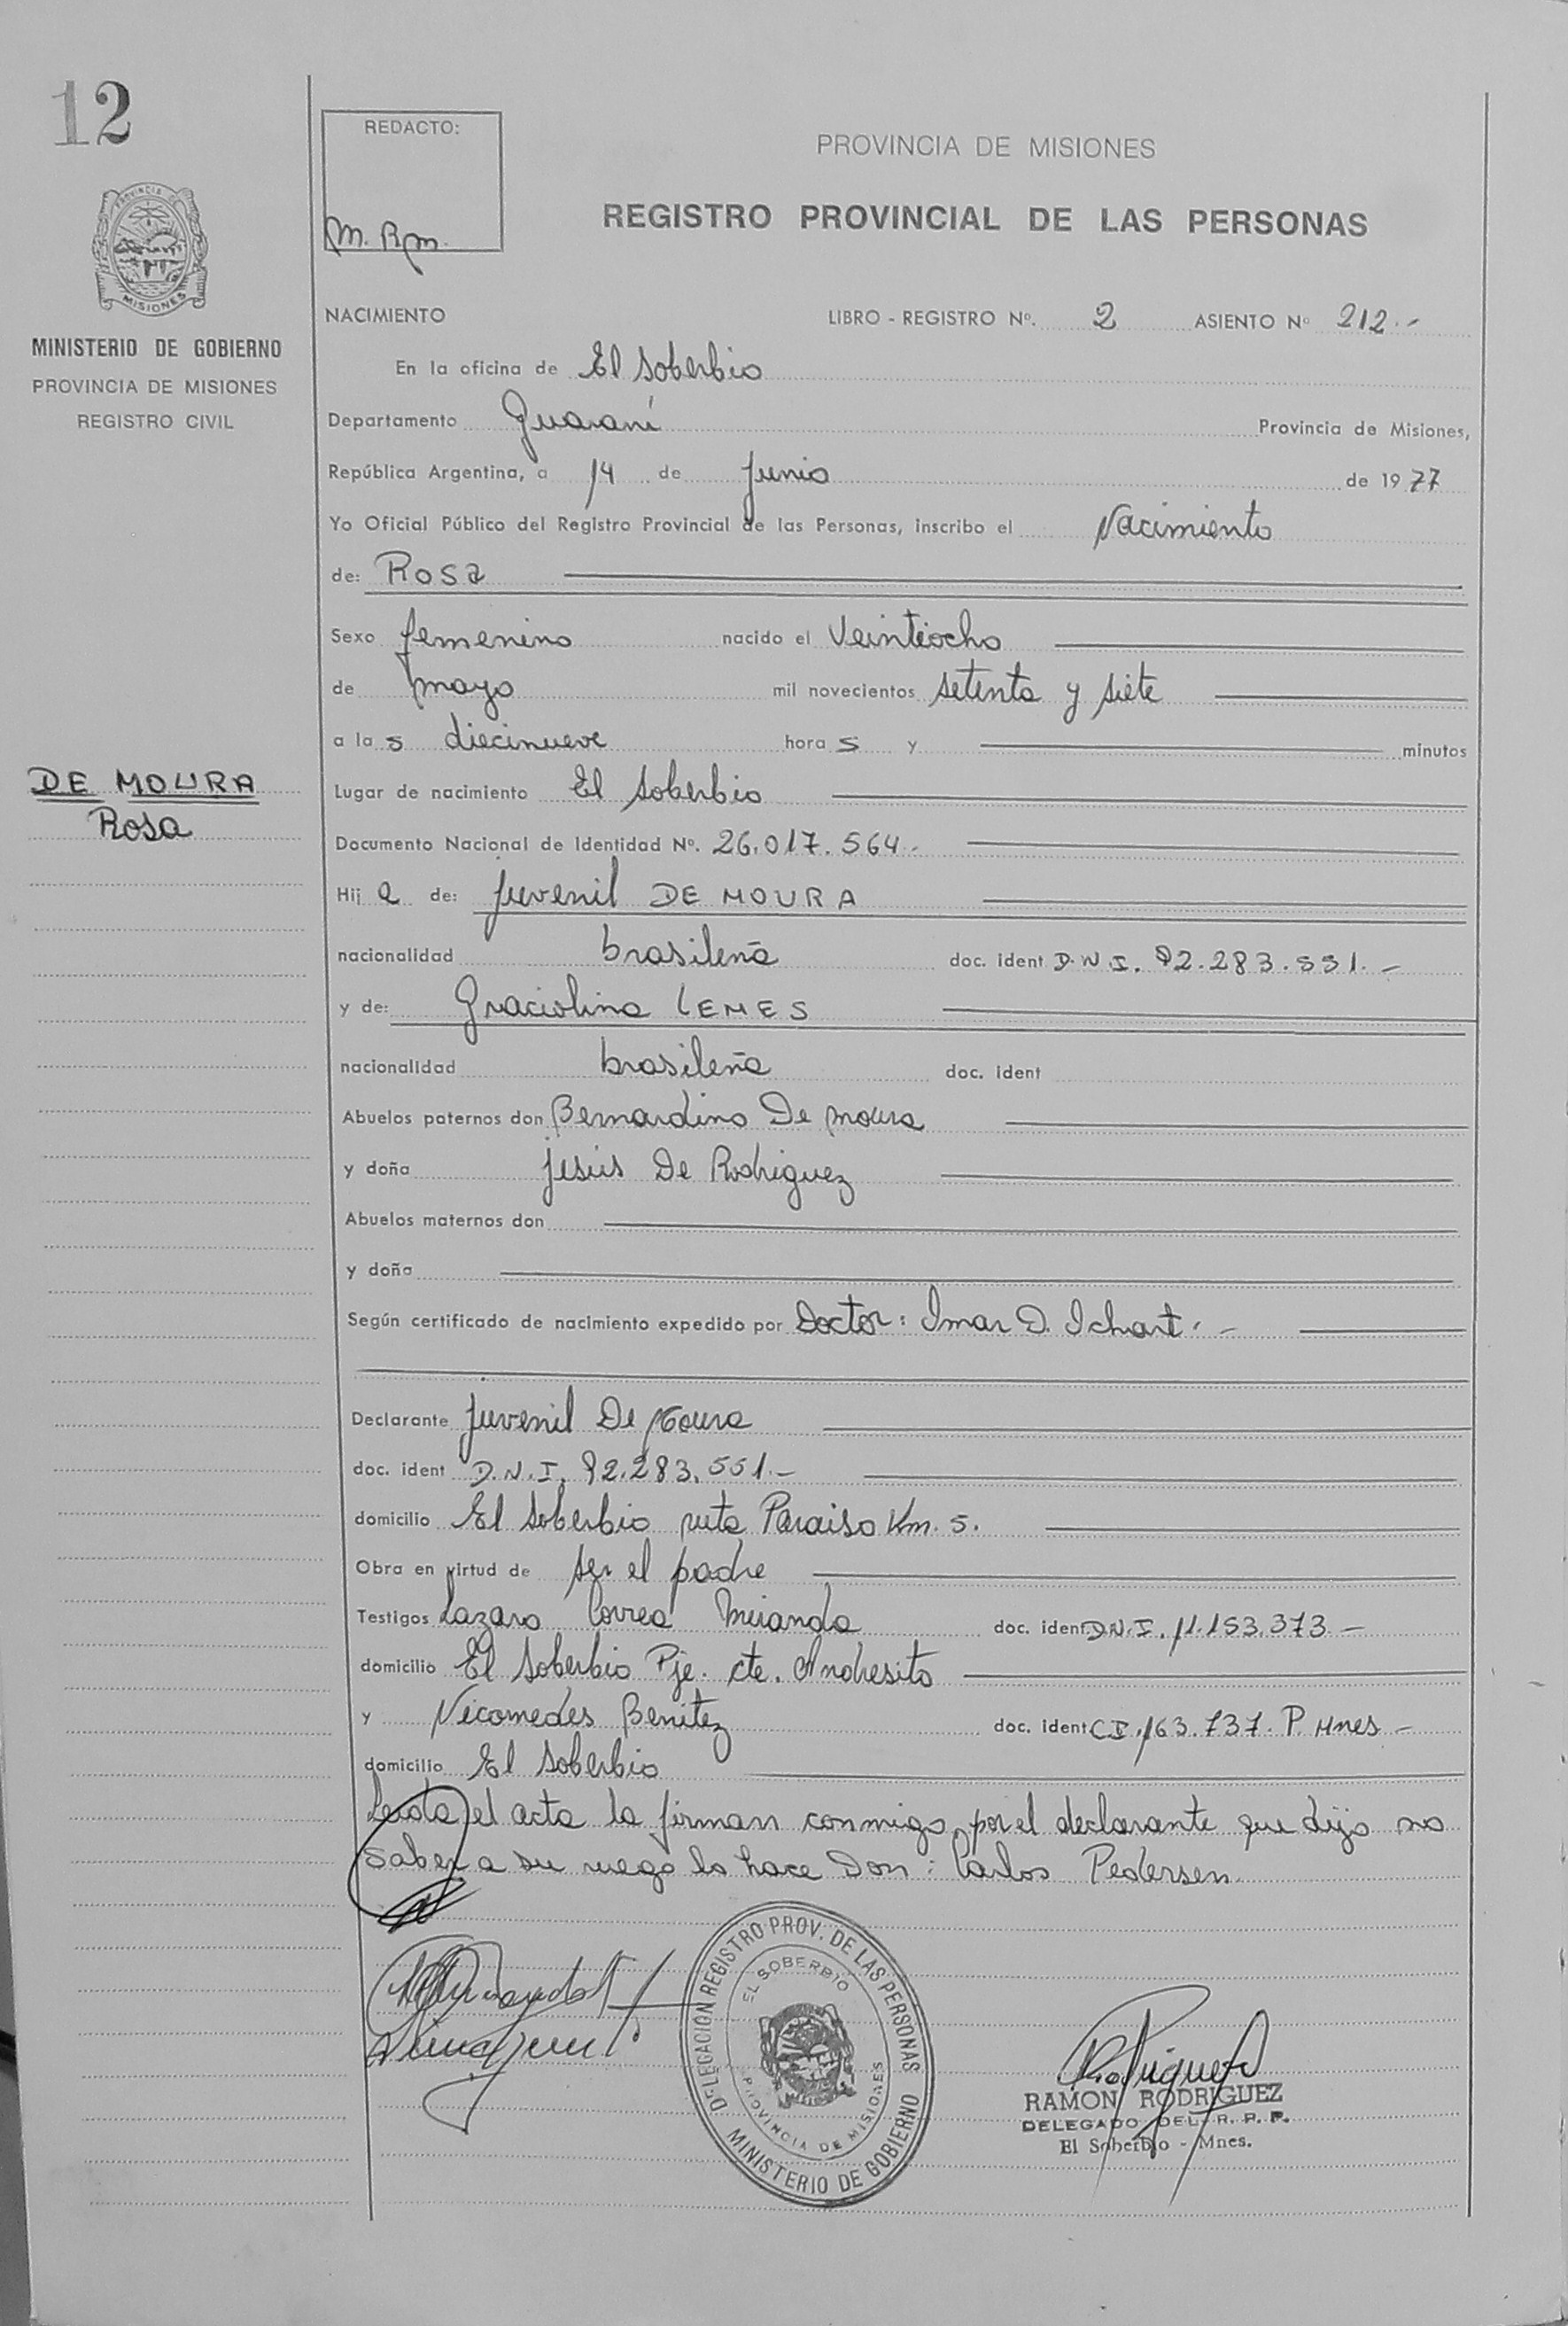 12
REDACTO:
M. Rm.
PROVINCIA DE MISIONES
REGISTRO PROVINCIAL DE LAS PERSONAS
PROVINCIA
MISIONES
MINISTERIO DE GOBIERNO
PROVINCIA DE MISIONES
REGISTRO CIVIL
NACIMIENTO LIBRO - REGISTRO Nº. 2 ASIENTO Nº 212.-
En la oficina de El Soberbio
Departamento Guaraní Provincia de Misiones,
República Argentina, a 14 de Junio de 1977
Yo Oficial Público del Registro Provincial de las Personas, inscribo el Nacimiento
de: Rosa
Sexo femenino nacido el Veintiocho
de mayo mil novecientos setenta y siete
a las diecinueve horas y minutos
DE MOURA
Rosa
Lugar de nacimiento El Soberbio
Documento Nacional de Identidad Nº. 26.017.564.-
Hija de: Juvenil DE MOURA
nacionalidad brasileña doc. ident D.N.I. 92.283.551.-
y de: Graciolina LEMES
nacionalidad brasileña doc. ident
Abuelos paternos don Bernardino De Moura
y doña Jesús De Rodriguez
Abuelos maternos don
y doña
Según certificado de nacimiento expedido por Doctor: Imar D. Ichart.-
Declarante Juvenil De Moura
doc. ident D.N.I. 92.283.551.-
domicilio El Soberbio ruta Paraiso Km. 5.
Obra en virtud de ser el padre
Testigos Lazaro Correa Miranda doc. ident D.N.I. 11.153.373-
domicilio El Soberbio Pje. cte. Andresito
y Nicomedes Benitez doc. ident C.I. 163.737. P. Mnes-
domicilio El Soberbio
Leída el acta la firman conmigo, por el declarante que dijo no
saber a su ruego lo hace Don: Carlos Pedersen.
DELEGACIÓN REGISTRO PROV. DE LAS PERSONAS
EL SOBERBIO
PROVINCIA DE MISIONES
MINISTERIO DE GOBIERNO
Rodriguez
RAMON RODRIGUEZ
DELEGADO DEL R. P. P.
El Soberbio - Mnes.